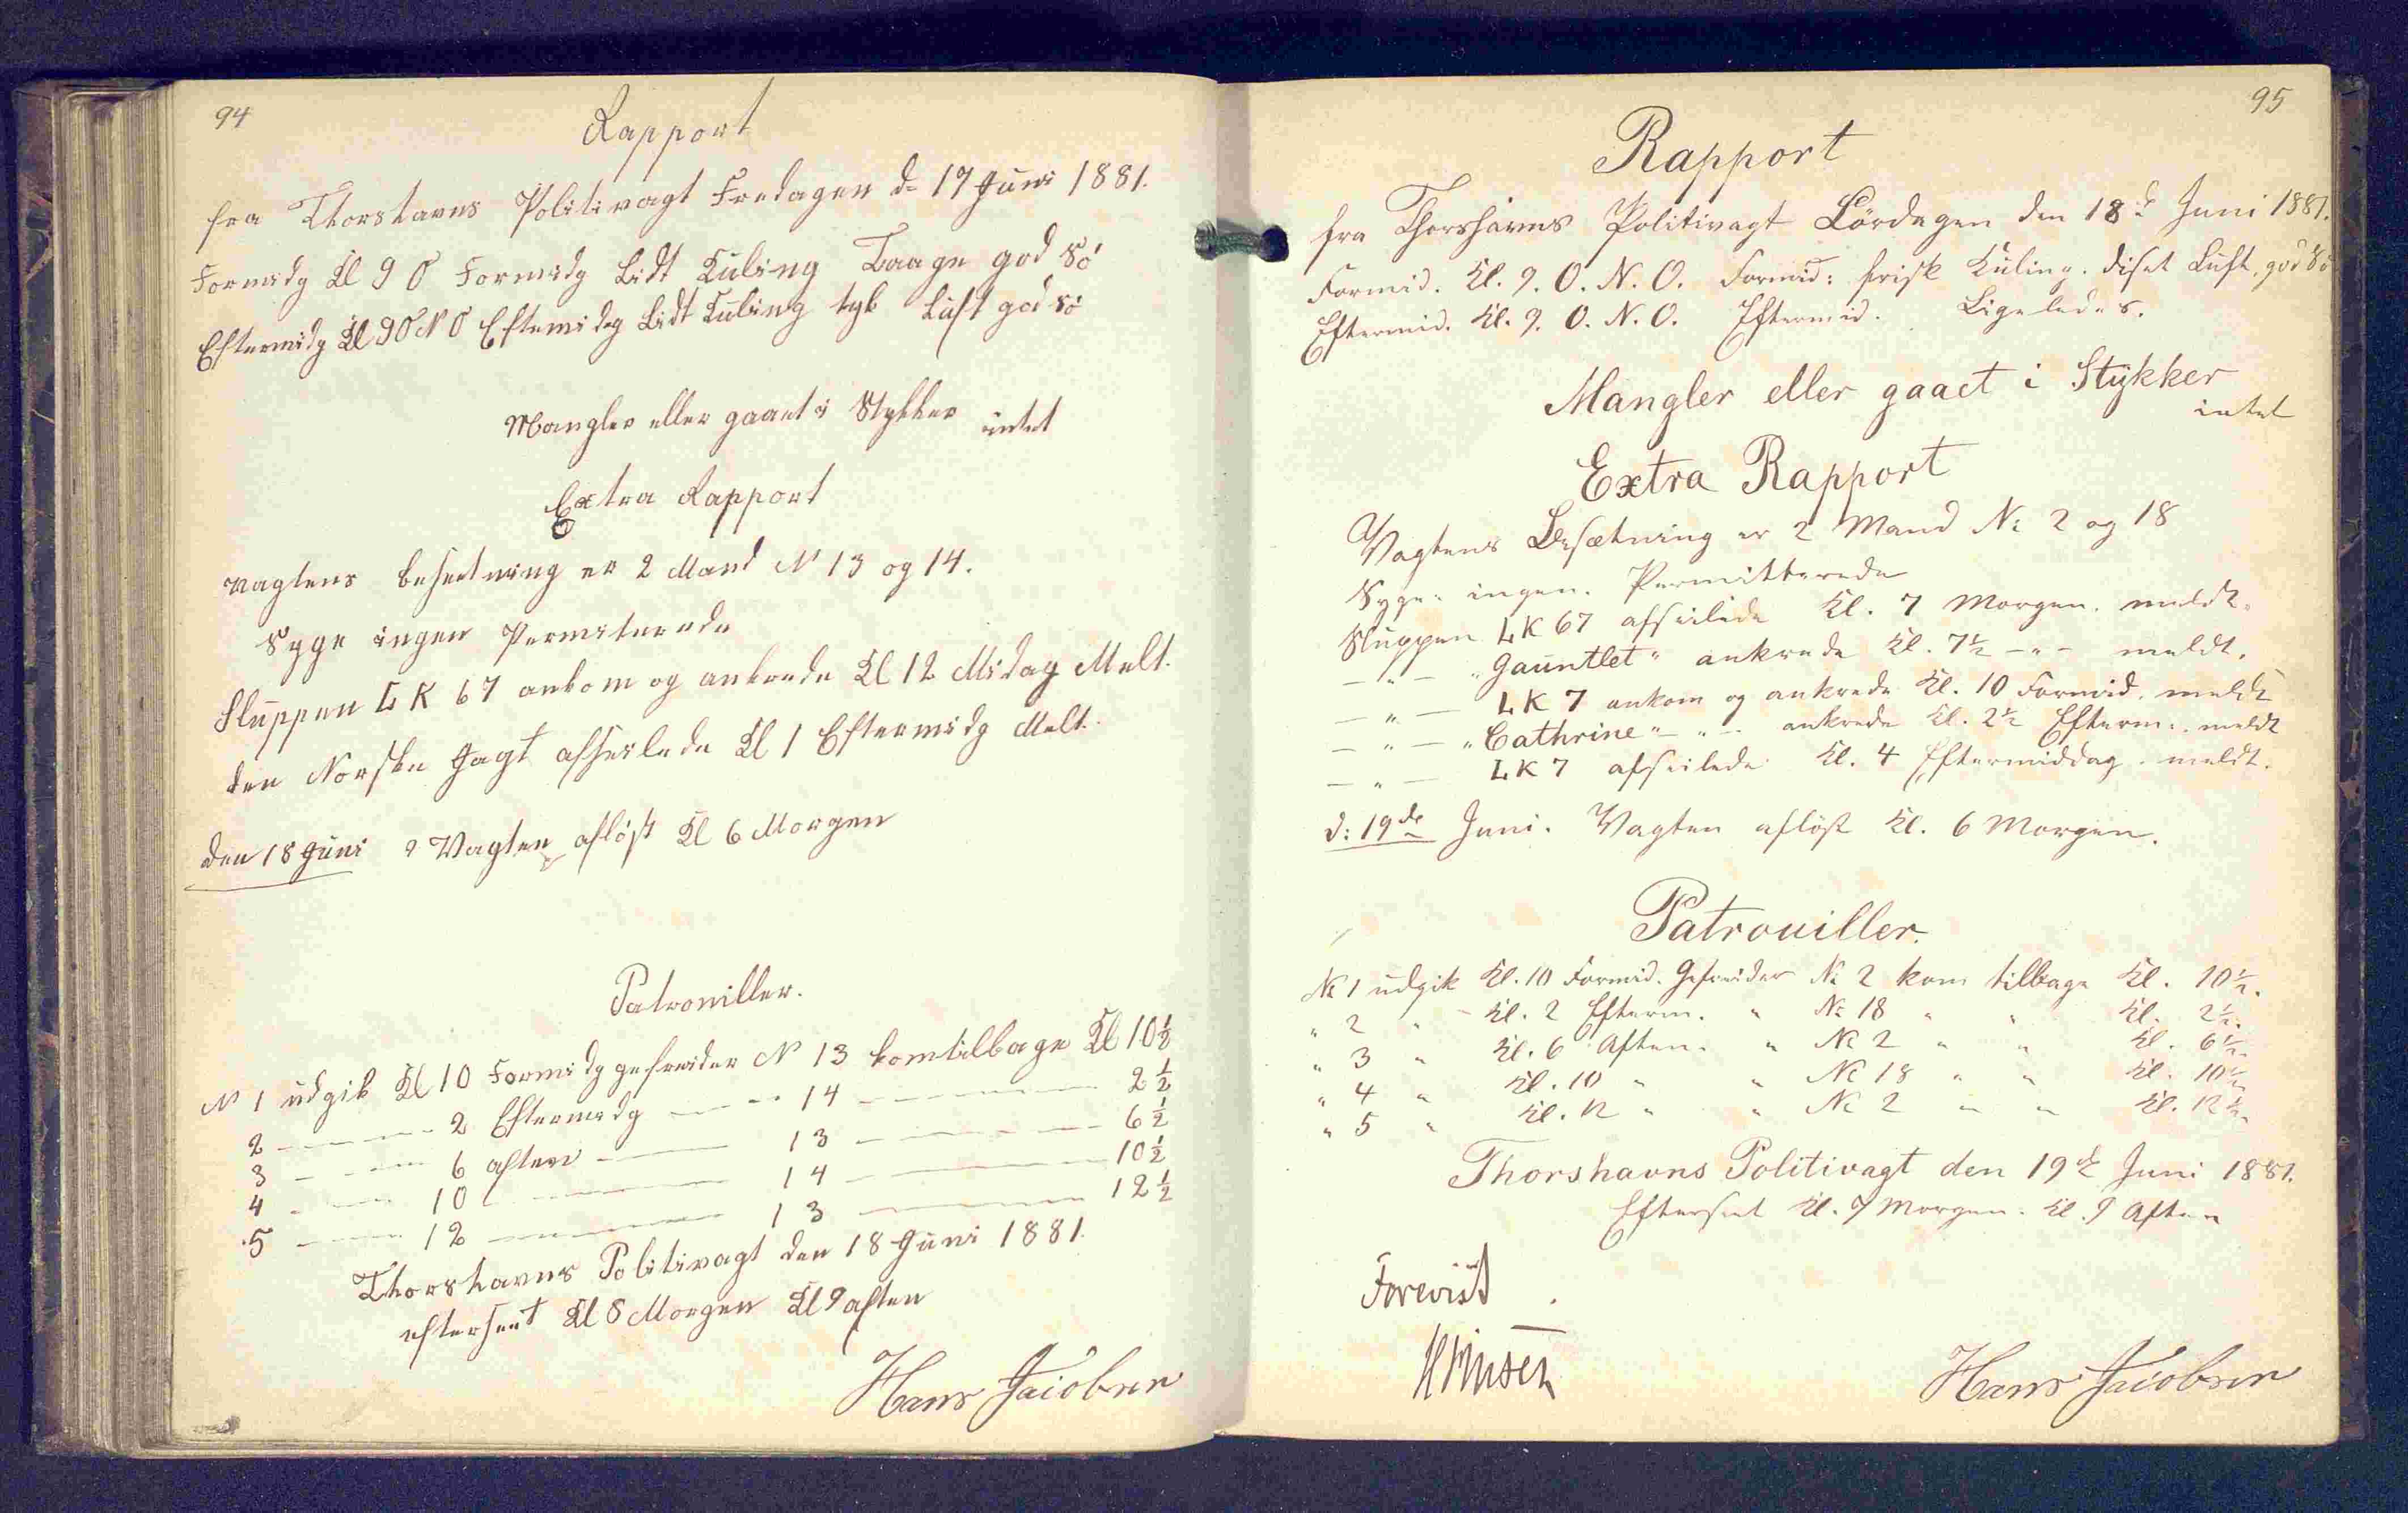 94
Rapport
fra Thorshavns Politivagt Fredagen d= 17 Juni 1881.
Formidg Kl 9 O Formidg Lidt Kuling Taage god Sö
Eftermidg Kl 9 O N O Eftemidg Lidt Kuling tyk Luft god Sö
Mangler eller gaaet i Stykker intet
Extra Rapport
Vagtens besætning er 2 Mand N 13 og 14.
Syge ingen Permiterede
Sluppen L K 67 ankom og ankrede Kl 12 Midag Melt.
den Norske Jagt afseilede Kl 1 Eftermidg Melt.
den 18 Juni Vagten aflöst Kl 6 Morgen
Patrouiller.
N 1 udgik Kl 10 Formidg gefreider N 13 kom tilbage Kl 10½
2 — — — 2 Eftermidg — — 14 — — — 2½
3 — — 6 aften — 13 — — — 6½
4 — — 10 — — — 14 — — — 10½
5 — — 12 — — — 13 — — — 12½
Thorshavns Politivagt den 18 Juni 1881.
efterseet Kl 8 Morgen Kl 9 aften
Hans Jacobsen
95
Rapport
fra Thorshavns Politivagt Lördagen den 18d Juni 1881.
Formid. Kl. 9. O. N. O. Formid: frisk Kuling. diset Luft, god Sö
Eftermid. Kl. 9. O. N. O. Eftermid. Ligeledes.
Mangler eller gaaet i Stykker
intet
Extra Rapport
Vagtens Besætning er 2 Mand No 2 og 18
Syge: ingen. Permitterede
Sluppen LK 67 afseilede Kl. 7 Morgen. meldt.
— " — "Gauntlet" ankrede Kl. 7½ — " — meldt.
— " — LK 7 ankom og ankrede Kl. 10 Formid. meldt
— " — "Cathrine" — " — ankrede Kl. 2½ Efterm. meldt
— " — LK 7 afseilede Kl. 4 Eftermiddag. meldt.
d: 19de Juni. Vagten aflöst Kl. 6 Morgen.
Patrouiller.
No 1 udgik Kl. 10 Formid. Gefreider No 2 kom tilbage Kl. 10½.
" 2 " Kl. 2 Efterm. " No 18 " " Kl. 2½.
" 3 " Kl. 6 Aften. " No 2 " " Kl. 6½.
" 4 " Kl. 10 " " No 18 " " Kl. 10½
" 5 " Kl. 12 " " No 2 " " Kl. 12½
Thorshavns Politivagt den 19de Juni 1881.
Efterseet Kl. 7 Morgen. Kl. 9 Aften
Forevist
Hans Jacobsen